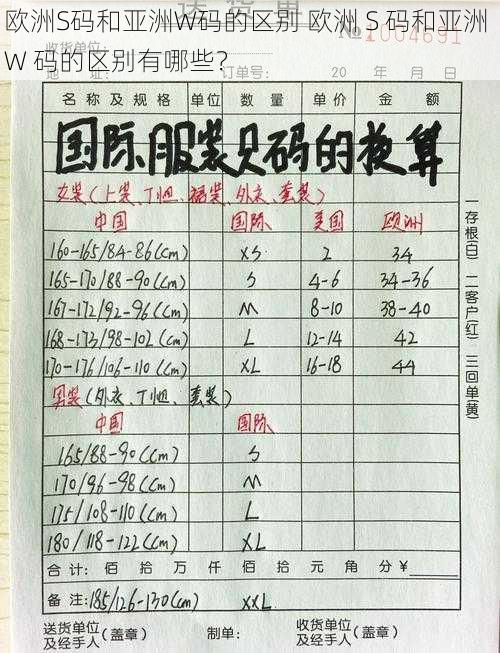 欧洲S码和亚洲W码的区别 欧洲 S 码和亚洲
W 码的区别有哪些？
No.1004691
订单号: 20 年 月 日
名称及规格 单位 数量 单价 金额
国际服装尺码的换算
女装(上装、T恤、裙装、外衣、套装)
中国 国际 美国 欧洲
160-165/84-86(cm) XS 2 34
165-170/88-90(cm) S 4-6 34-36
167-172/92-96(cm) M 8-10 38-40
168-173/98-102(cm) L 12-14 42
170-176/106-110(cm) XL 16-18 44
男装(外衣、T恤、套装)
中国 国际
165/88-90(cm) S
170/96-98(cm) M
175/108-110(cm) L
180/118-122(cm) XL
合计: 佰 拾 万 仟 佰 拾 元 角 分 ¥
备注:185/126-130(cm) XXL
送货单位及经手人(盖章) 制单: 收货单位及经手人(盖章)
一存根(白) 二客户(红) 三回单(黄)